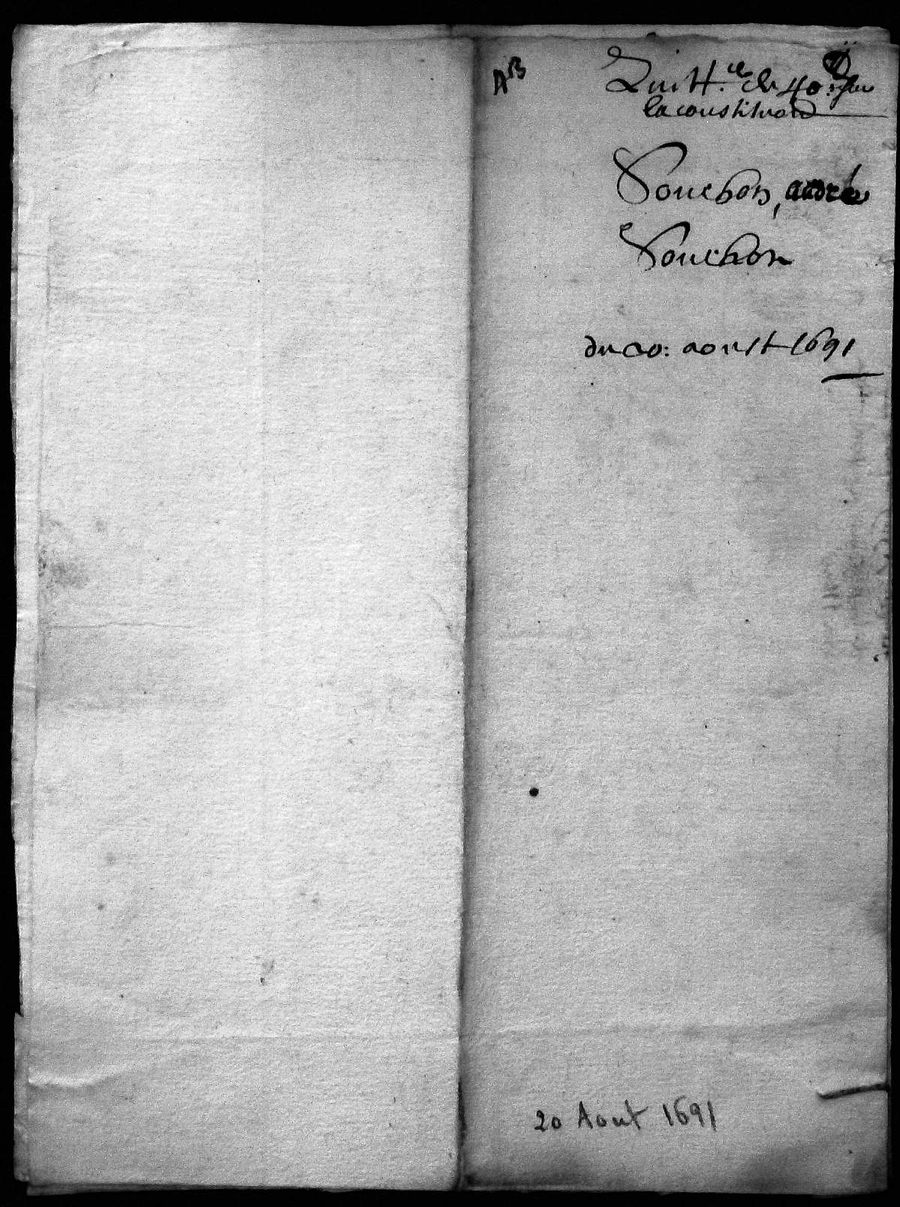 AB
Quitt.ce de 40 : sur
la constitution
Souchon, andré
Souchon
du 20: aoust 1691
20 Aout 1691